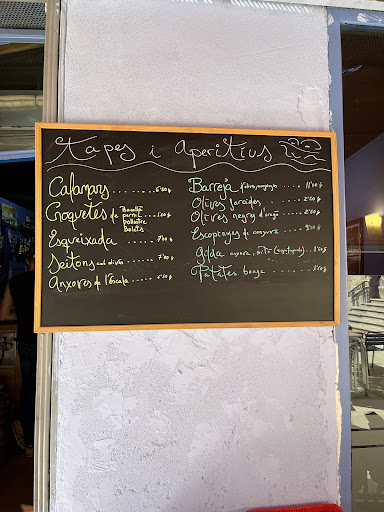 Tapes i Aperitius
Calamars ...... 6'50 €
Croquetes de Bacallà ... 1'50 €
pernil
pollastre
bolets
Esqueixada ..... 7'00 €
Seitons amb olives ..... 7'00 €
Anxoves de l'Escala .....
Barreja .... 11'00 €
Olives farcides ..... 2'50 €
Olives negres d'aragó .... 2'50 €
Escopinyes de conserva ....
Gilda anxova, .... 
Patates bossa .....